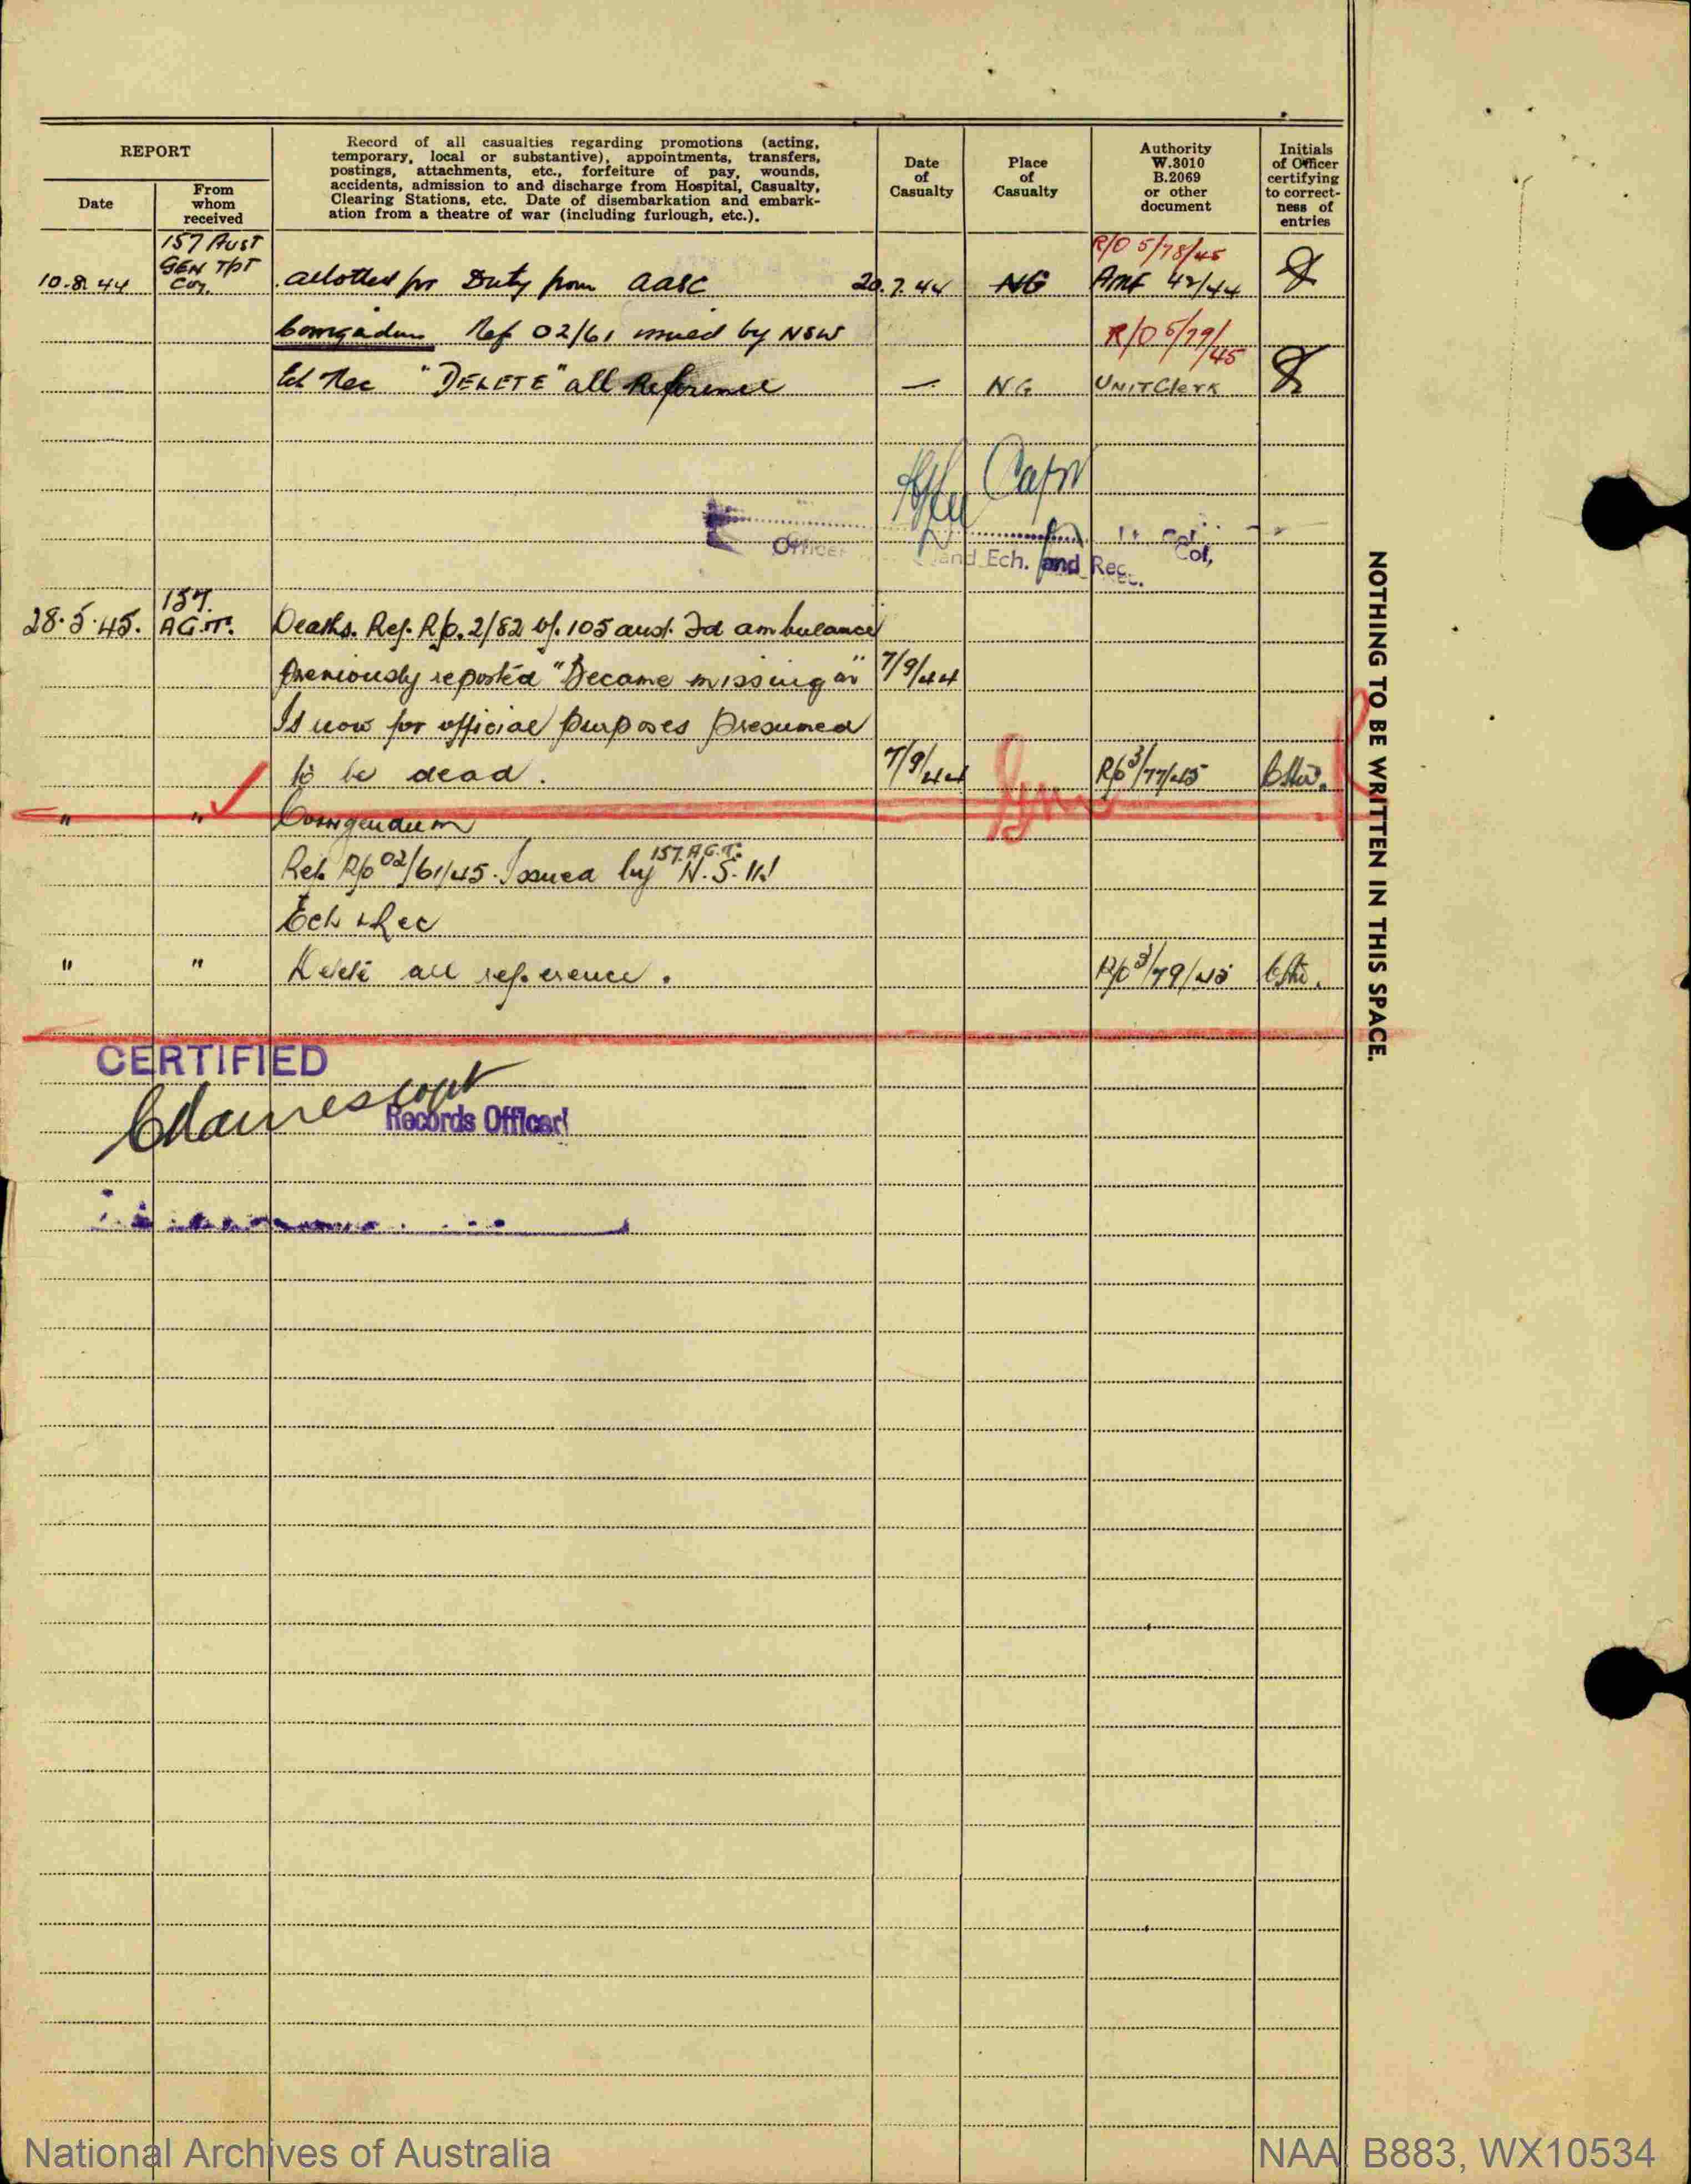 REPORT
Date
From
whom
received
Record of all casualties regarding promotions (acting,
temporary, local or substantive), appointments, transfers,
postings, attachments, etc., forfeiture of pay, wounds,
accidents, admission to and discharge from Hospital, Casualty,
Clearing Stations, etc. Date of disembarkation and embark-
ation from a theatre of war (including furlough, etc.).
Date
of
Casualty
Place
of
Casualty
Authority
W.3010
B.2069
or other
document
Initials
of Officer
certifying
to correct-
ness of
entries
157 Aust
GEN TPT
Coy.
R/O 5/78/45
10.8.44 allotted for Duty from AASC 20.7.44 NG AMF 42/44
Corrigendum Ref 02/61 issued by NSW R/O 5/79/45
Ech Rec "DELETE" all Reference — N.G. UNIT Clerk
Capt
Officer
and Ech. and Rec.
Col,
28.5.45. 157. A.G.T. Deaths. Ref. R/O. 2/82 of 105 aust. Fd ambulance
previously reported "Became missing on" 7/9/44
Is now for official purposes presumed
to be dead. 7/9/44 R/O 3/77/45
" " Corrigendum
Ref. R/O 02/61/45. Issued by 157. A.G.T. N.S.W
Ech & Rec
" " Delete all reference. R/O 3/79/45
CERTIFIED
Records Officer
NOTHING TO BE WRITTEN IN THIS SPACE.
National Archives of Australia
NAA B883, WX10534